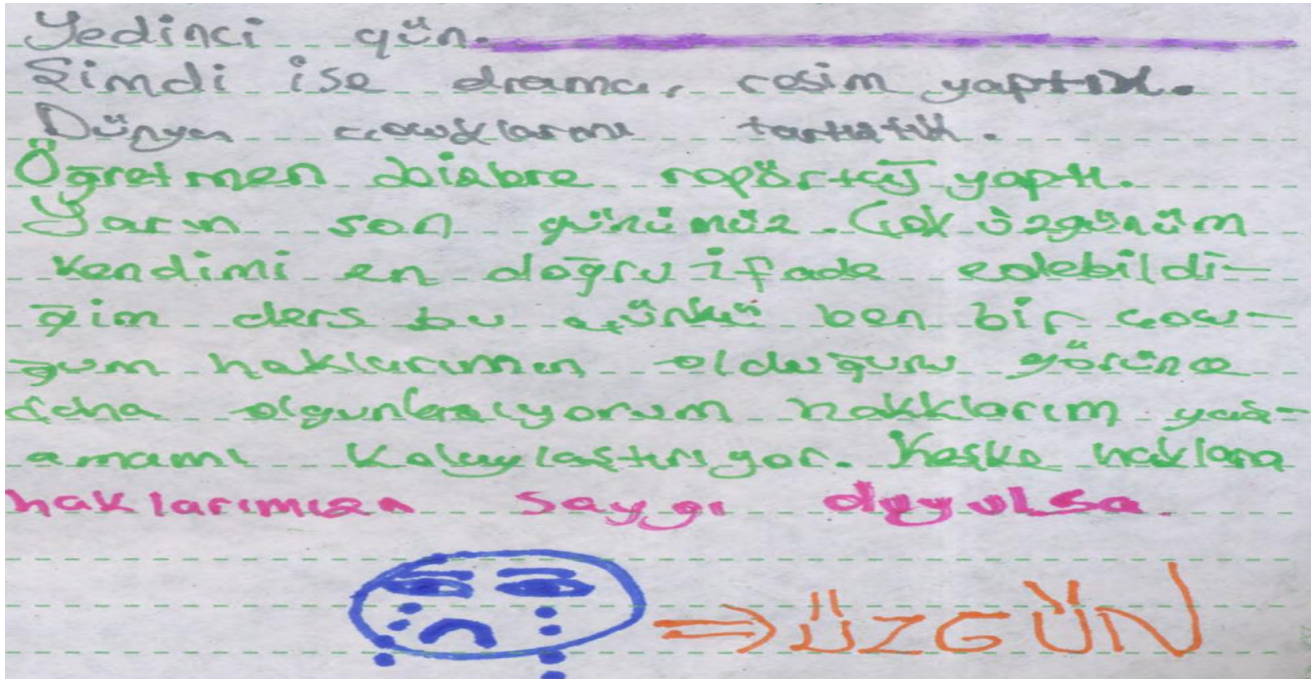 Yedinci gün.
Şimdi ise drama, resim yaptık.
Dünya çocuklarını tartıştık.
Öğretmen bizlere ropörtaj yaptı.
Yarın son günümüz. Çok üzgünüm
Kendimi en doğru ifade edebildi-
ğim ders bu çünkü ben bir çocu-
ğum haklarımın olduğunu görünce
daha olgunlaşıyorum hakklarım yaş-
amamı kolaylaştırıyor. Keşke haklara
haklarımıza saygı duyulsa
ÜZGÜN